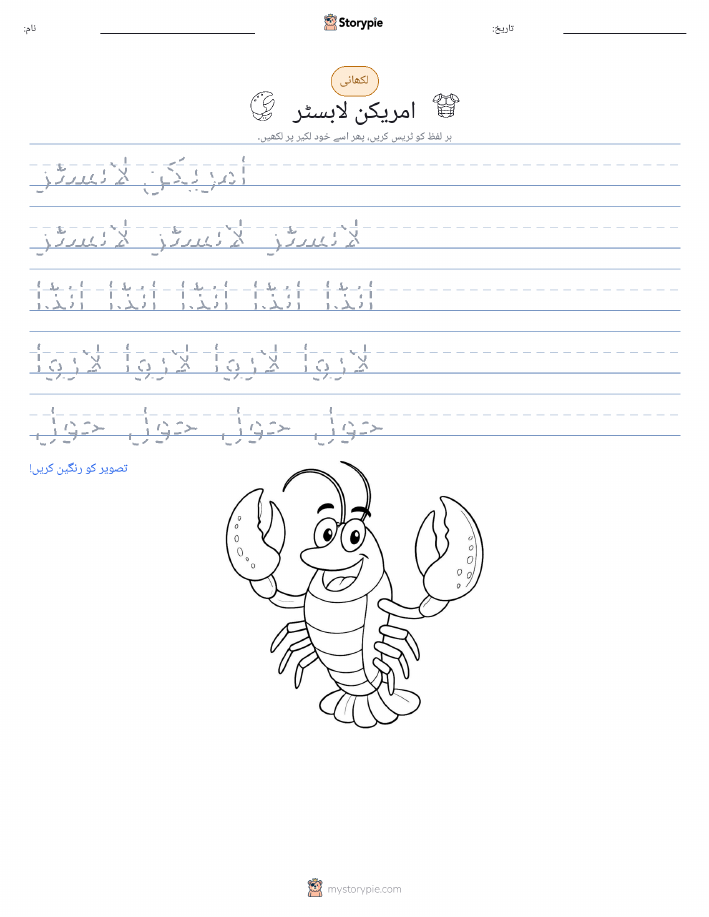 نام:
Storypie
تاریخ:
لکھائی
امریکن لابسٹر
ہر لفظ کو ٹریس کریں، پھر اسے خود لکیر پر لکھیں۔
امریکن لابسٹر
لابسٹر لابسٹر لابسٹر
انڈا انڈا انڈا انڈا انڈا
لاروا لاروا لاروا لاروا
خول خول خول خول
تصویر کو رنگین کریں!
mystorypie.com